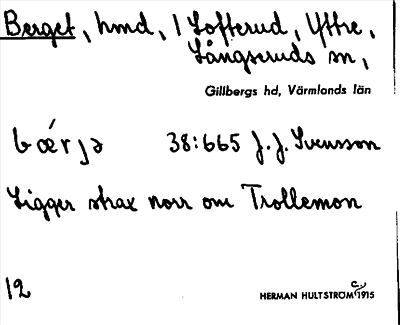 Berget, hmd, 1 Lofterud, Yttre,
Långseruds sn,
Gillbergs hd, Värmlands län
bǽrjə 38:665 J. J. Svensson
Ligger strax norr om Trollemon
12
HERMAN HULTSTRÖM 1915